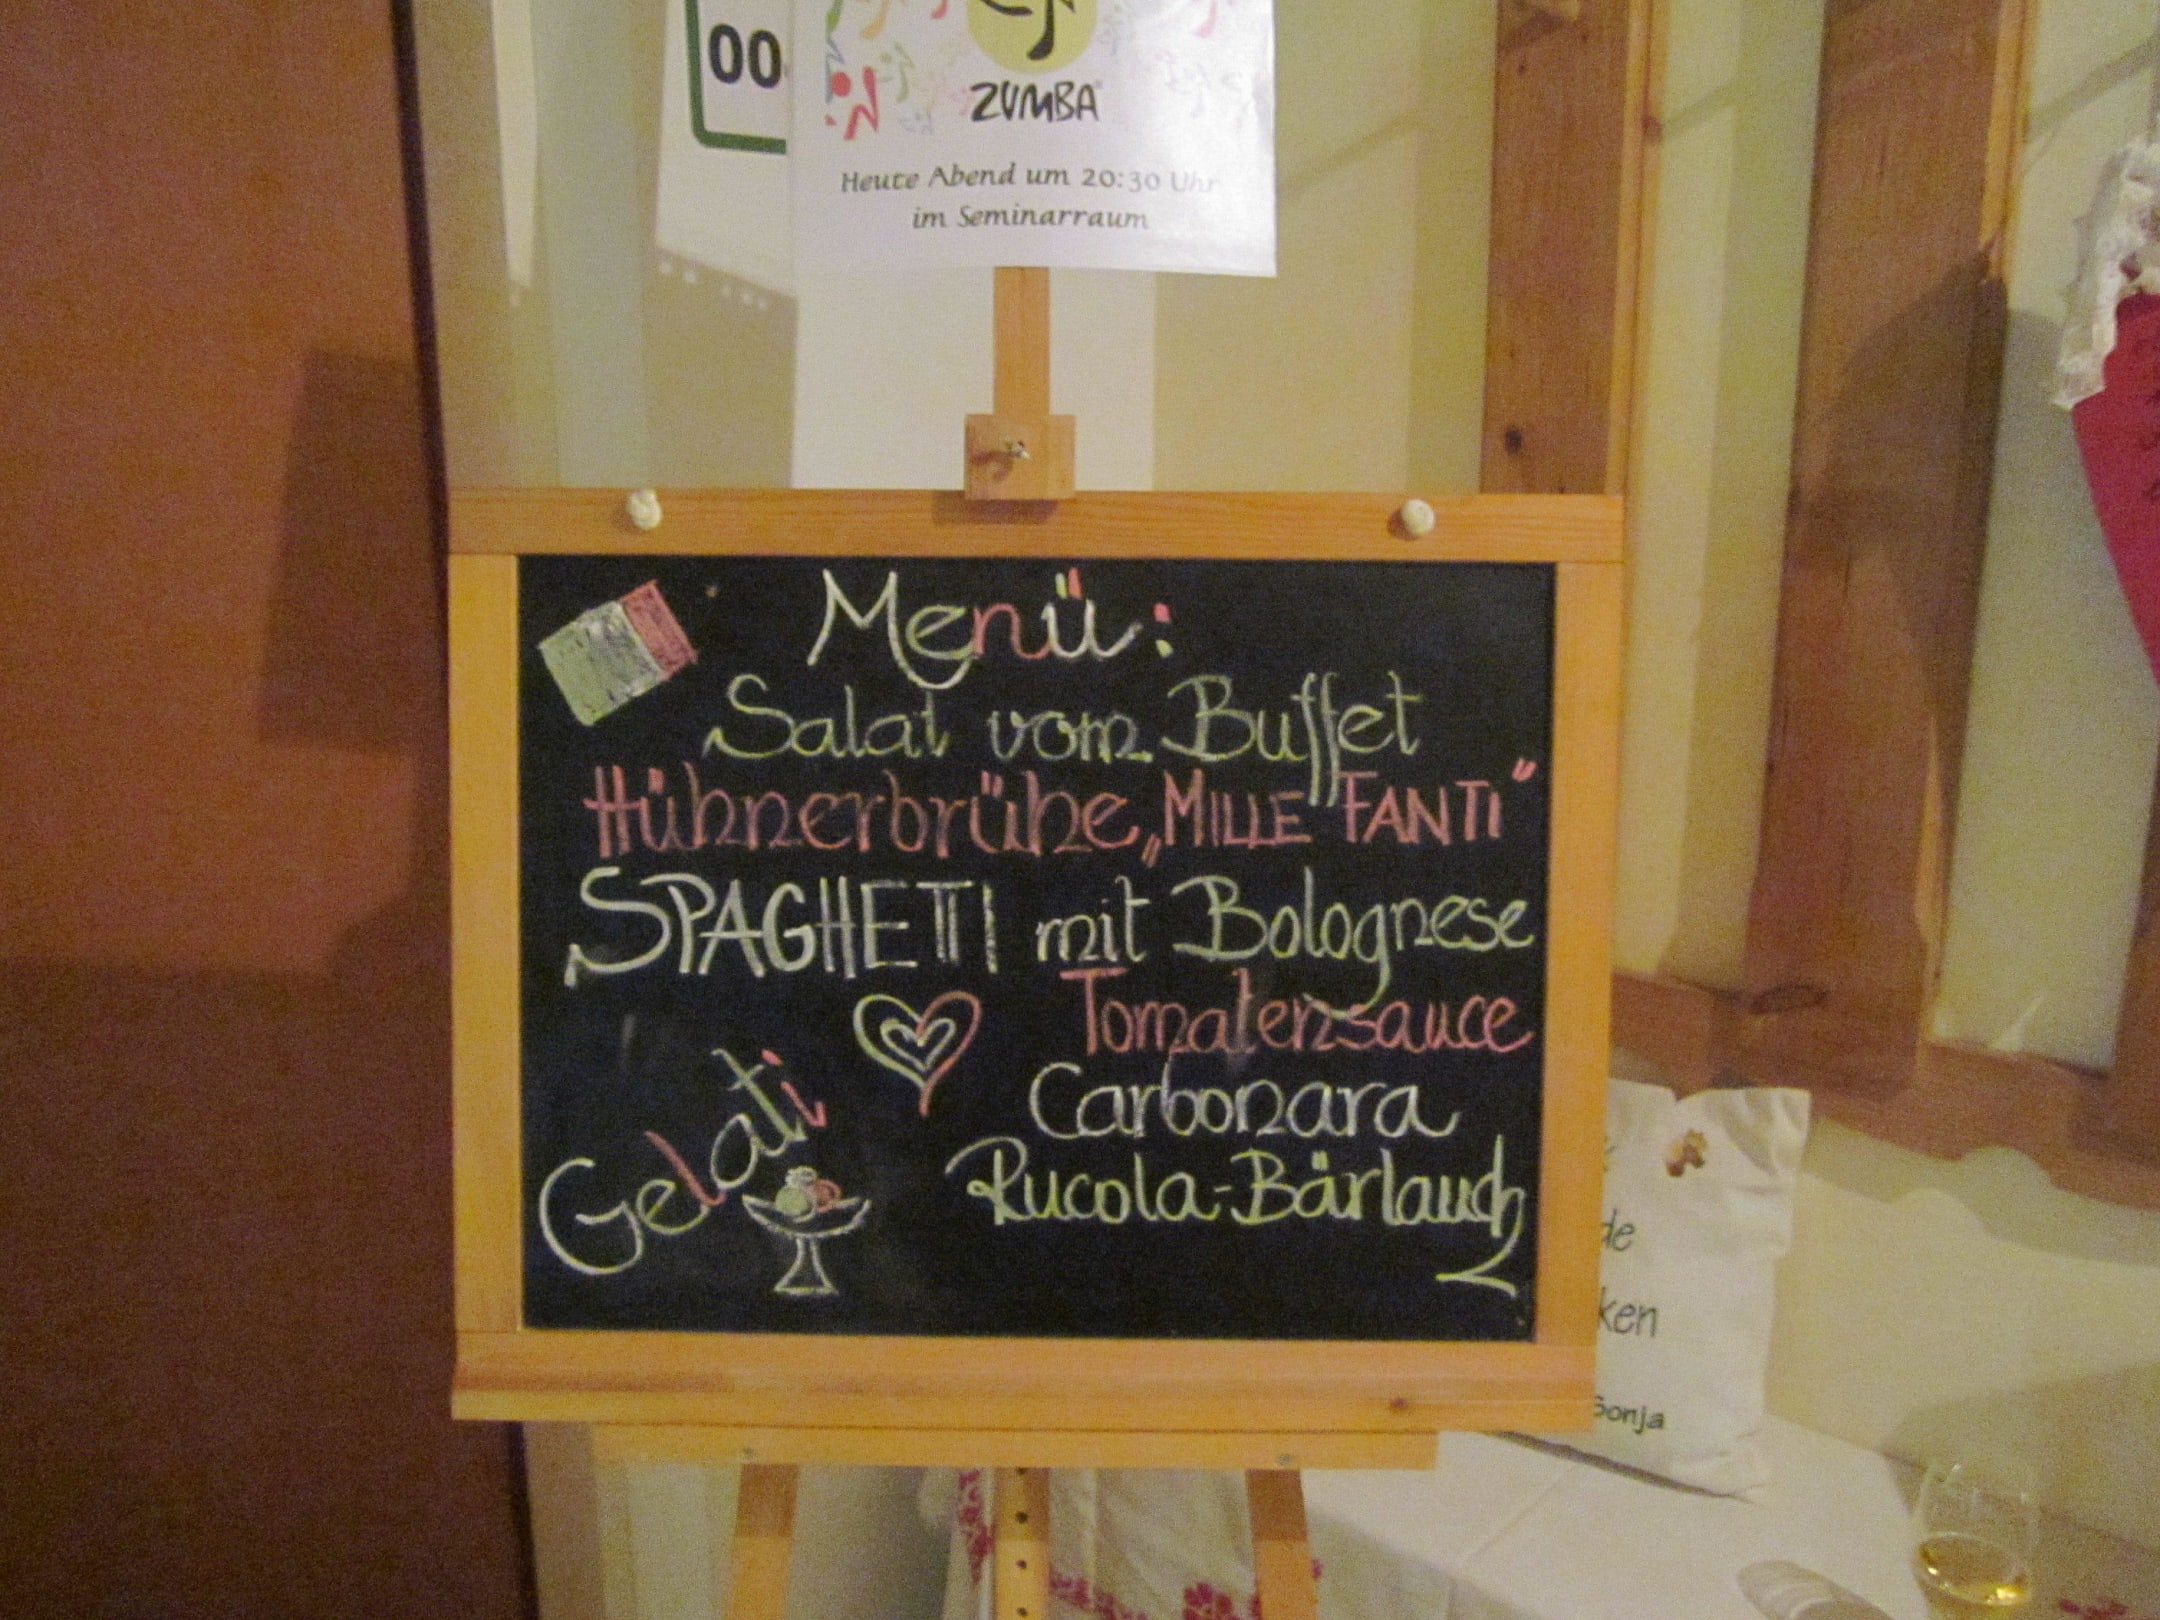 00
ZUMBA
Heute Abend um 20:30 Uhr
im Seminarraum
Menü:
Salat vom Buffet
Hühnerbrühe „MILLE FANTI“
SPAGHETTI mit Bolognese
Tomatensauce
Carbonara
Rucola-Bärlauch
Gelati
de
ken
Sonja